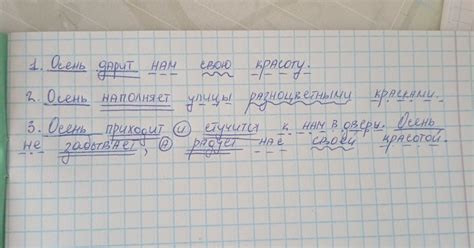 1. Осень дарит нам свою красоту.
2. Осень наполняет улицы разноцветными красками.
3. Осень приходит и стучится к нам в дверь. Осень
не задывает, а радует нас своей красотой.